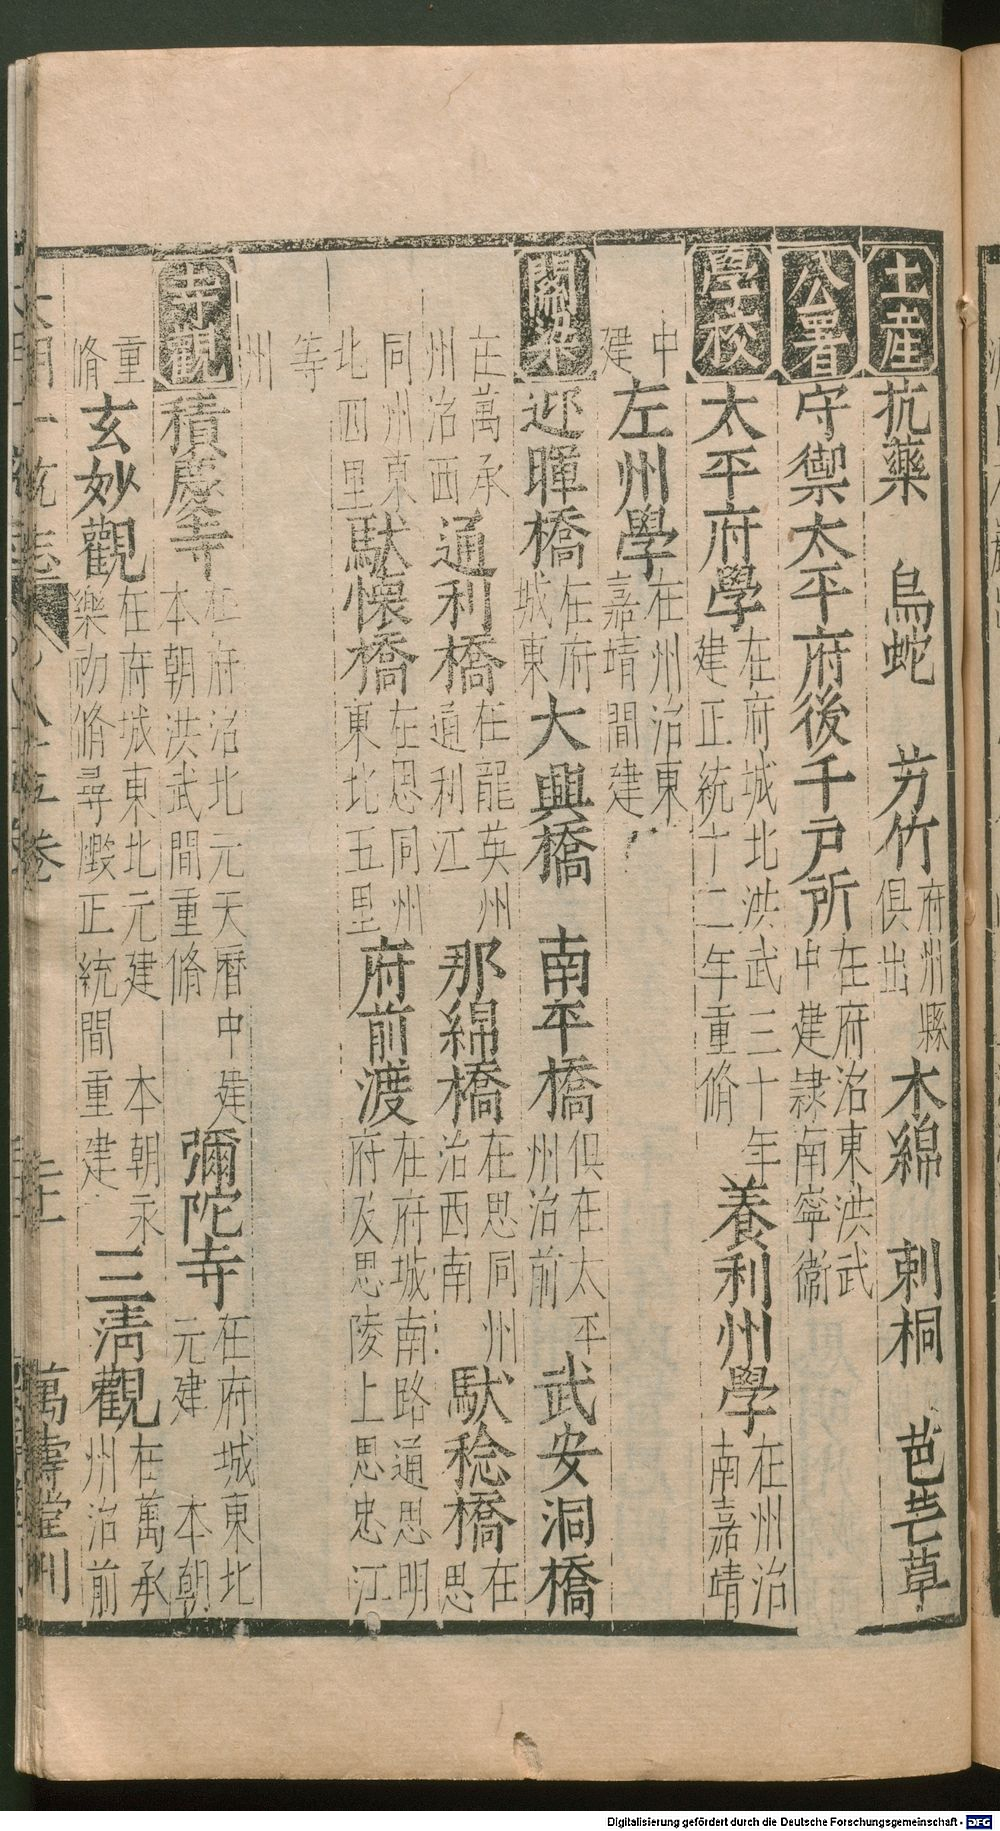 土産 抗藥 烏蛇 竻竹 府州縣俱出 木綿 刺桐 芭芒草
公署 守禦太平府後千戶所 在府治東洪武中建隷南寧衞
學校 太平府學 在府城北洪武三十年建正統十二年重脩 養利州學 在州治南嘉靖
中建 左州學 在州治東嘉靖間建
關梁 迎暉橋 在府城東 大興橋 南平橋 俱在太平州治前 武安洞橋
在萬承州治西 通利橋 在龍英州通利江 那綿橋 在思同州治西南 馱稔橋 在思
同州東北四里 馱懷橋 在恩同州東北五里 府前渡 在府城南路通思明府及思陵上思忠江
等州
寺觀 積慶寺 在府治北元天曆中建本朝洪武間重脩 彌陀寺 在府城東北元建 本朝
重脩 玄妙觀 在府城東北元建 本朝永樂初脩尋燬正統間重建 三清觀 在萬承州治前
大明一統志 八十五卷 二十二 萬壽堂刊
Digitalisierung gefördert durch die Deutsche Forschungsgemeinschaft - DFG